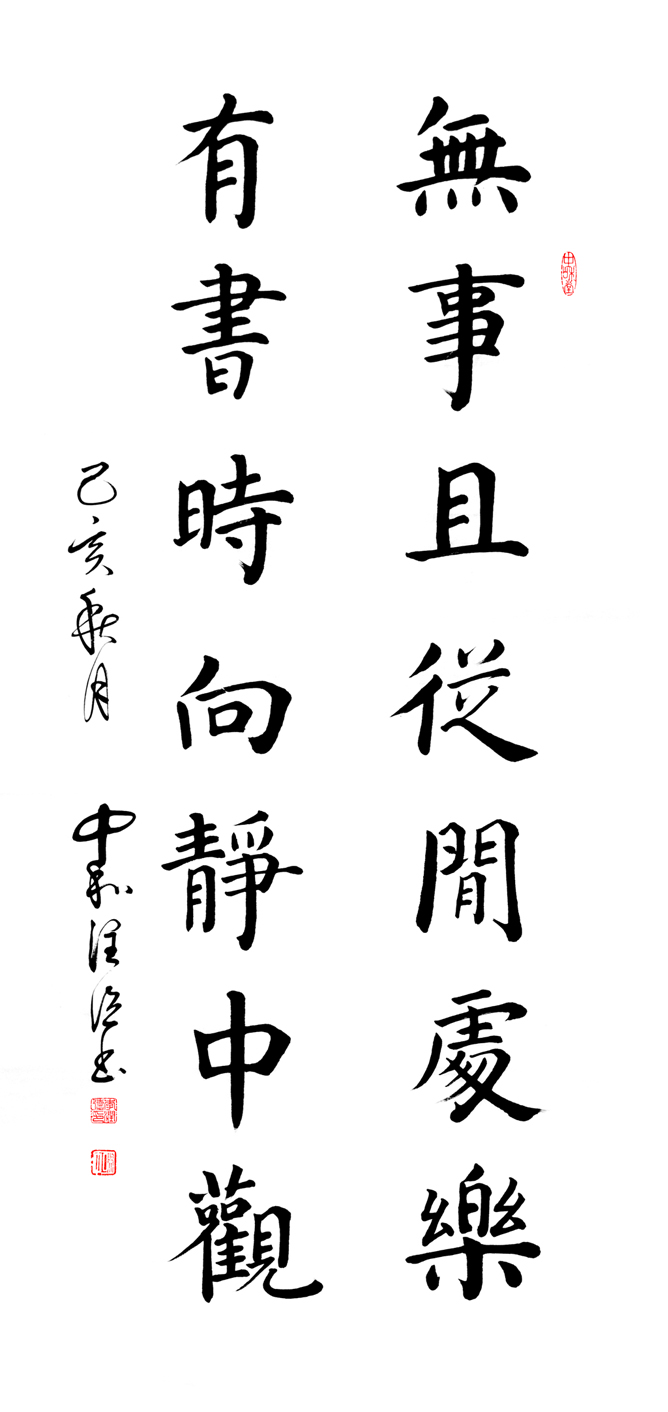 無事且從閒處樂
有書時向靜中觀
己亥秋月
中和
書
中和堂